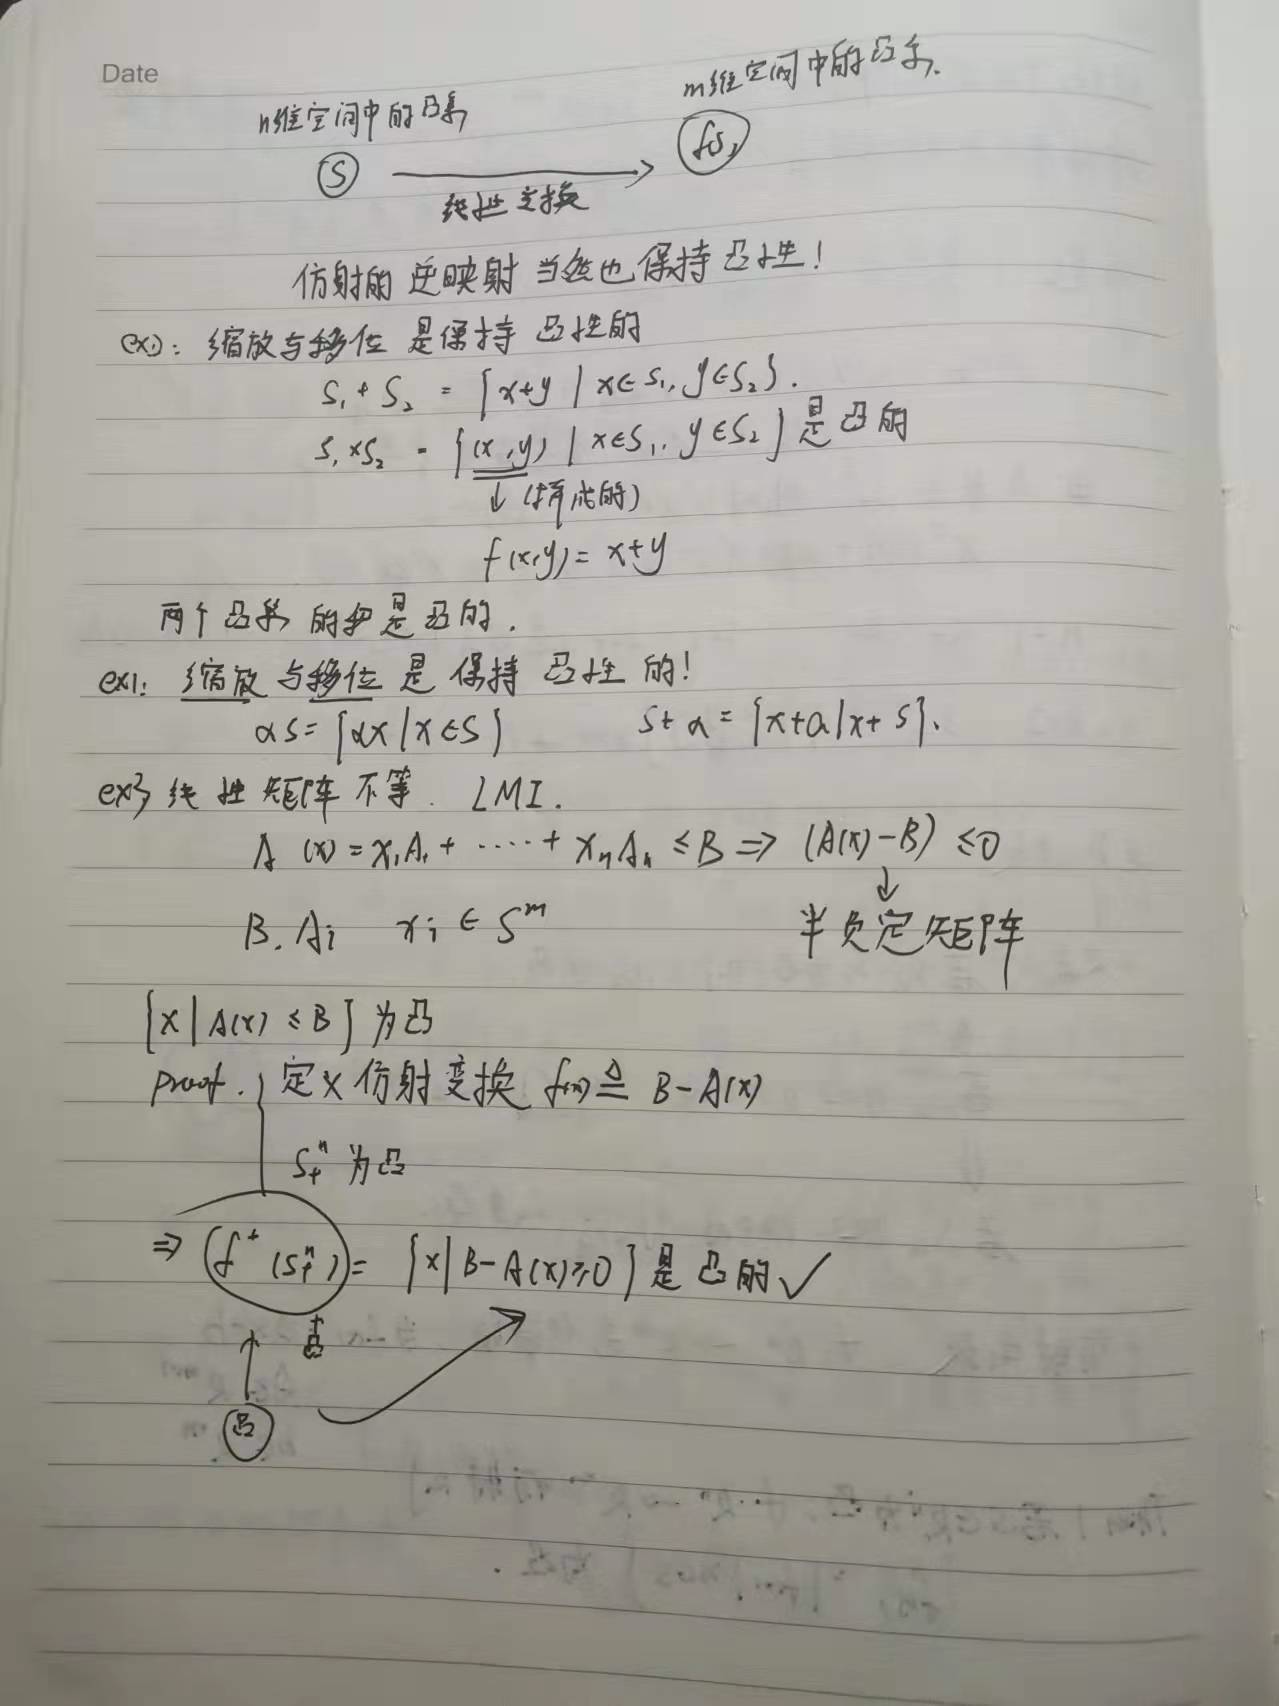 Date
n维空间中的凸集
m维空间中的凸集.
S
f(S)
线性变换
仿射的逆映射当然也保持凸性!
ex1: 缩放与移位是保持凸性的
S₁ + S₂ = {x+y | x∈S₁, y∈S₂}.
S₁×S₂ = {(x,y) | x∈S₁, y∈S₂} 是凸的
↓
f(x,y) = x+y
两个凸集的和是凸的.
ex1: 缩放与移位是保持凸性的!
αS = {αx | x∈S}  S+a = {x+a | x+S}.
ex3 线性矩阵不等. LMI.
A(x) = x₁A₁ + ····· + xₙAₙ ≤ B ⇒ (A(x)-B) ≤0
↓
B. Aᵢ xᵢ ∈ Sᵐ
半负定矩阵
{x | A(x) ≤ B} 为凸
proof. 定义仿射变换 f(x) ≜ B-A(x)
S₊ⁿ 为凸
⇒ f⁺(S₊ⁿ) = {x | B-A(x)≥0} 是凸的 ✓
凸